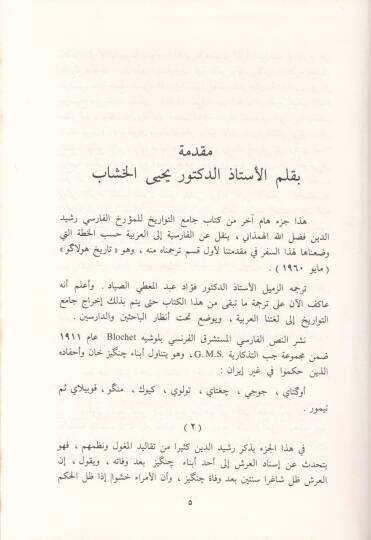 مقدمة
بقلم الأستاذ الدكتور يحيى الخشاب
هذا جزء هام آخر من كتاب جامع التواريخ للمؤرخ الفارسي رشيد
الدين فضل الله الهمذاني ، ينقل عن الفارسية إلى العربية حسب الخطة التي
وضعناها لهذا السفر في مقدمتنا لأول قسم ترجمناه منه ، وهو « تاريخ هولاگو »
( مايو ١٩٦٠ ) .
ترجمه الزميل الأستاذ الدكتور فؤاد عبد المعطي الصياد . وأعلم أنه
عاكف الآن على ترجمة ما تبقى من هذا الكتاب حتى يتم بذلك إخراج جامع
التواريخ إلى لغتنا العربية ، ويوضع تحت أنظار الباحثين والدارسين .
نشر النص الفارسي المستشرق الفرنسي بلوشيه Blochet عام ١٩١١
ضمن مجموعة جب التذكارية .G.M.S ، وهو يتناول أبناء چنگيز خان وأحفاده
الذين حكموا في غير إيران :
أوگتاي ، جوجي ، چغتاي ، تولوي ، كيوك ، منگو ، قوبيلاي ثم
تيمور .
( ٢ )
في هذا الجزء يذكر رشيد الدين كثيرا من تقاليد المغول ونظمهم ، فهو
يتحدث عن إسناد العرش إلى أحد أبناء چنگيز بعد وفاته ، ويقول ، إن
العرش ظل شاغرا سنتين بعد وفاة چنگيز ، وأن الأمراء خشوا إذا ظل الحكم
٥